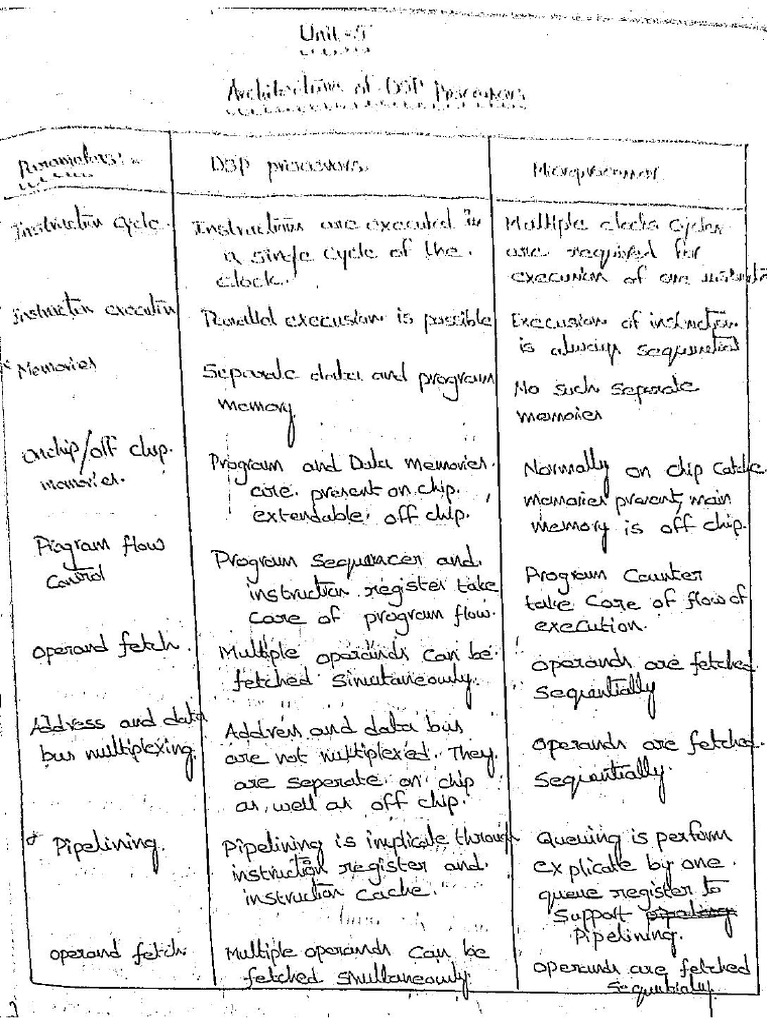 Unit-5
Architecture of DSP Processors
Parameters:-
DSP processors.
Microprocessor
Instruction cycle.
Instructions are executed in
a single cycle of the
clock.
Multiple clocks cycles
are required for
execusion of one
Instruction execution
Parallel execusion is possible
Execusion of instruction
is always sequential
Memories
Separate data and program
memory
No such separate
memories
Onchip/off chip.
memories.
Program and Data memories.
are present on chip.
extendable off chip.
Normally on chip catche
memories present, main
memory is off chip.
Program flow
control
Program sequencer and
instruction register take
care of program flow.
Program Counter
take care of flow of
execution.
operand fetch.
Multiple operands can be
fetched simultaneously.
operands are fetched
sequentially
Address and data
bus multiplexing.
Address and data bus
are not multiplexed. They
are seperate on chip
as well as off chip.
operands are fetched.
sequentially.
Pipelining.
Pipelining is implicate through
instruction register and
instruction cache.
Queuing is perform
explicate by one
queue register to
support pipelining
Pipelining.
operand fetch.
Multiple operands can be
fetched simultaneously.
operands are fetched
sequentialy.